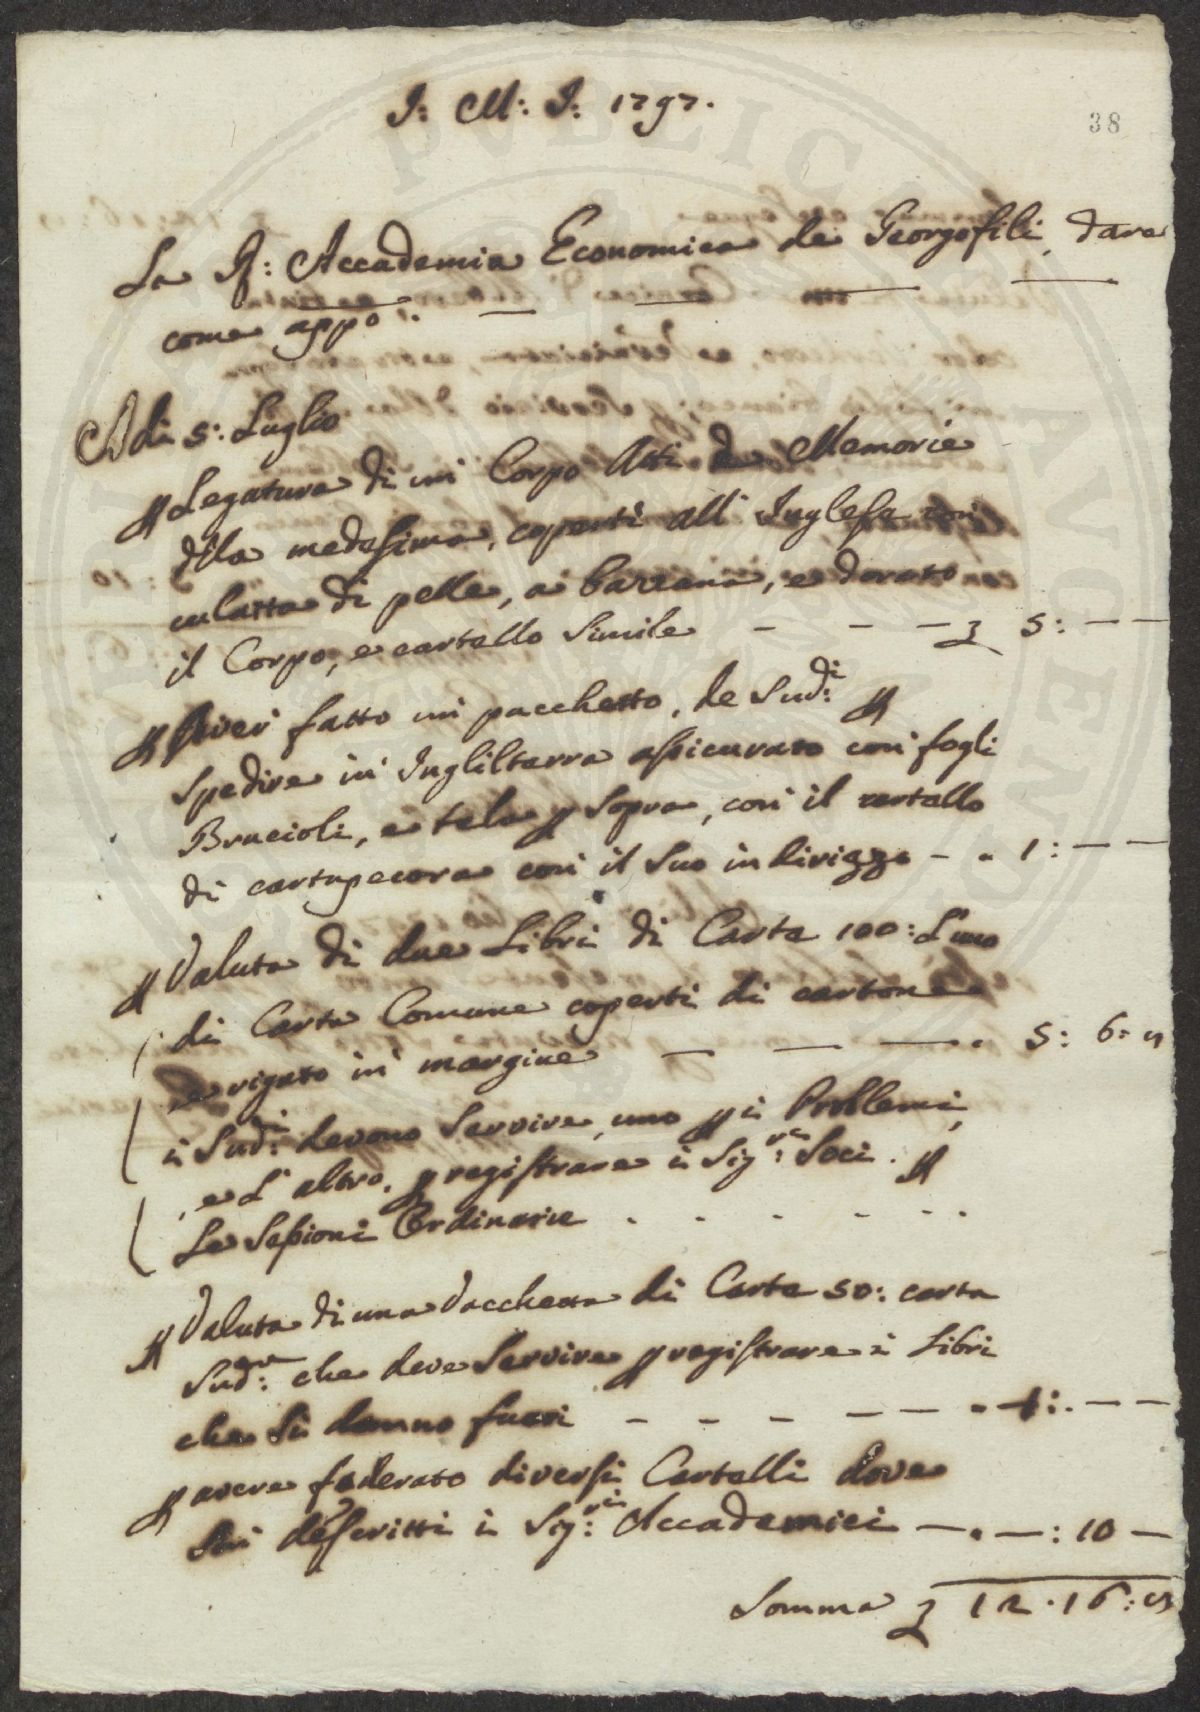 J: M: J: 1797.
38
La R: Accademia Economica de Georgofili dare
come appo:
Adi 5: Luglio
p Legatura di un Corpo Atti de Memorie
della medesima, coperti all' Inglese con
culatta di pelle, a bazzana, e dorato
il Corpo, e cartello simile - - - 5: - -
p Aver fatto un pacchetto, de Sud:i p
spedire in Inghilterra assicurato con fogli
Brucioli, e tela p sopra, con il cartello
di cartapecora con il suo indirizzo - . 1: - -
p Valuta di due Libri di Carte 100: L'uno
di Carta Comune coperti di cartone
e rigato in margine - - - . 5: 6:
i Sud:i devono servire, uno p i Problemi,
e L'altro, p registrare i Sig:ri Soci. p
Le Sessioni Ordinarie . . . . . .
p Valuta di una Vacchetta di Carte 50: carta
Sud:a che deve servire p registrare i Libri
che si danno fuori - - - - - - . 1: - -
p avere foderato diversi Cartelli dove
son descritti i Sig:ri Accademici - . - : 10 -
Somma 12 . 16: